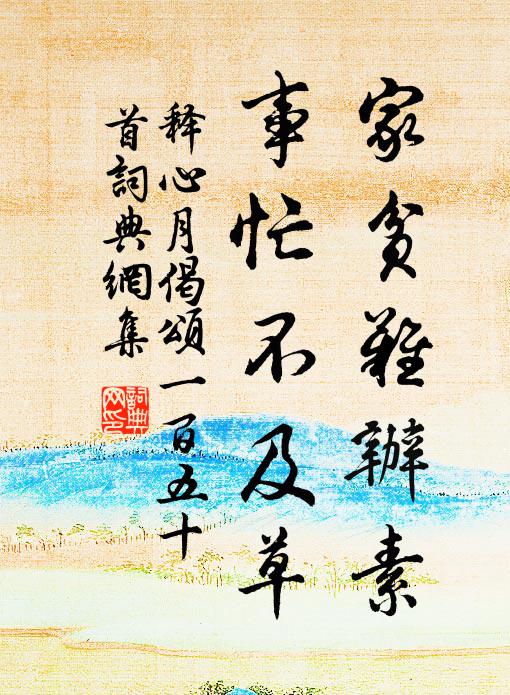 家貧難辦素
事忙不及草
釋心月偈頌一百五十
首詞典網集
詞典網印